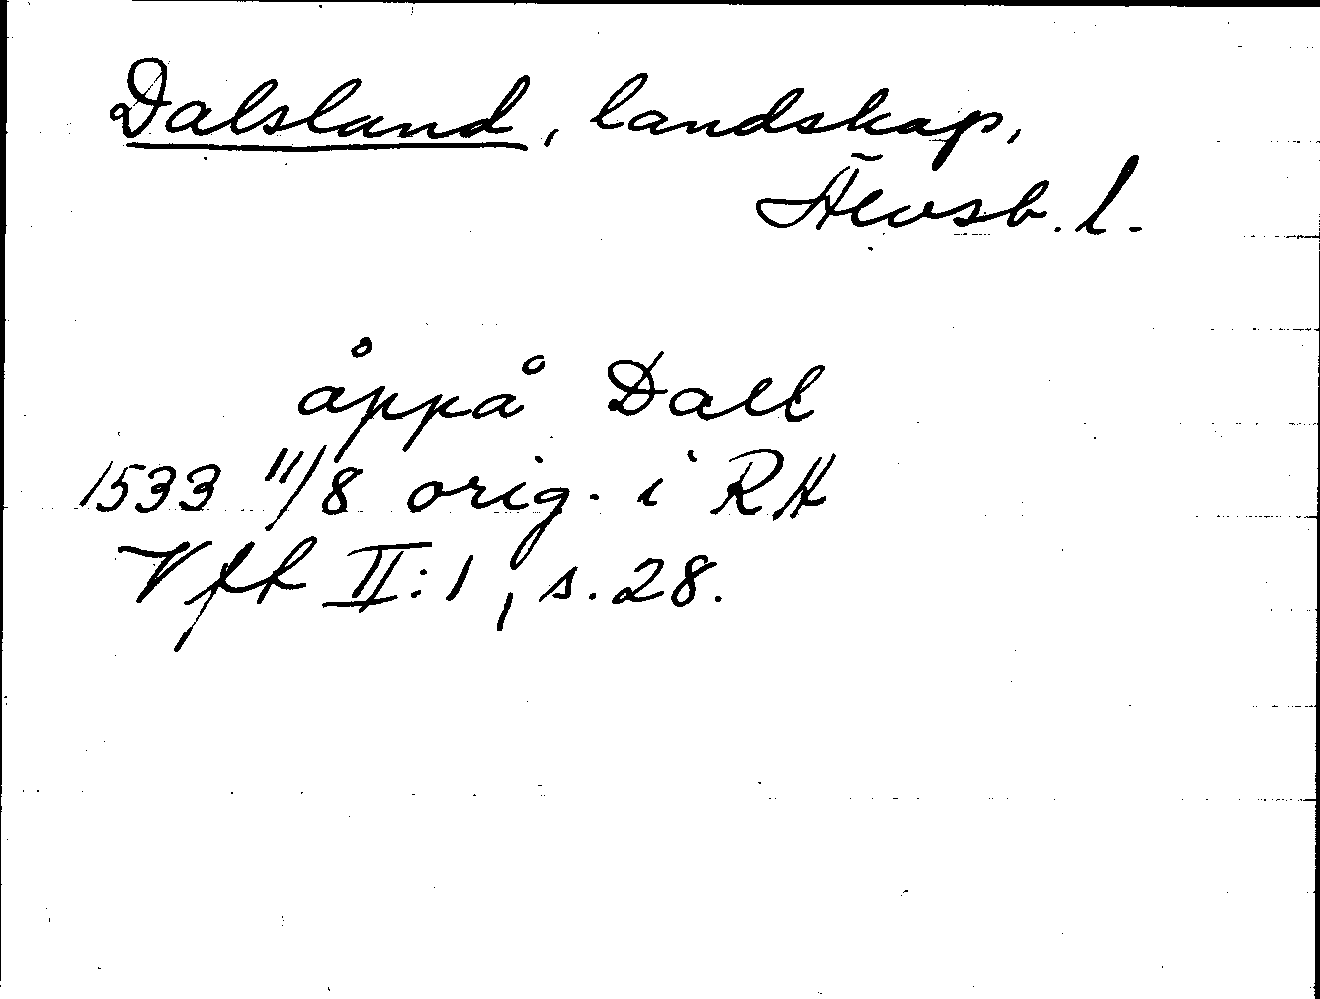 Dalsland, landskap,
Älvsb. l.
åppå Dall
1533 11/8 orig. i RH
Vft II:1, s. 28.